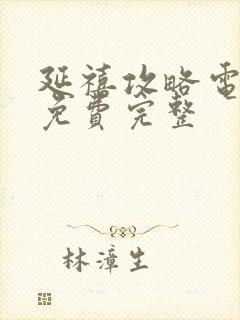 延禧攻略電
免費完整
林漳生